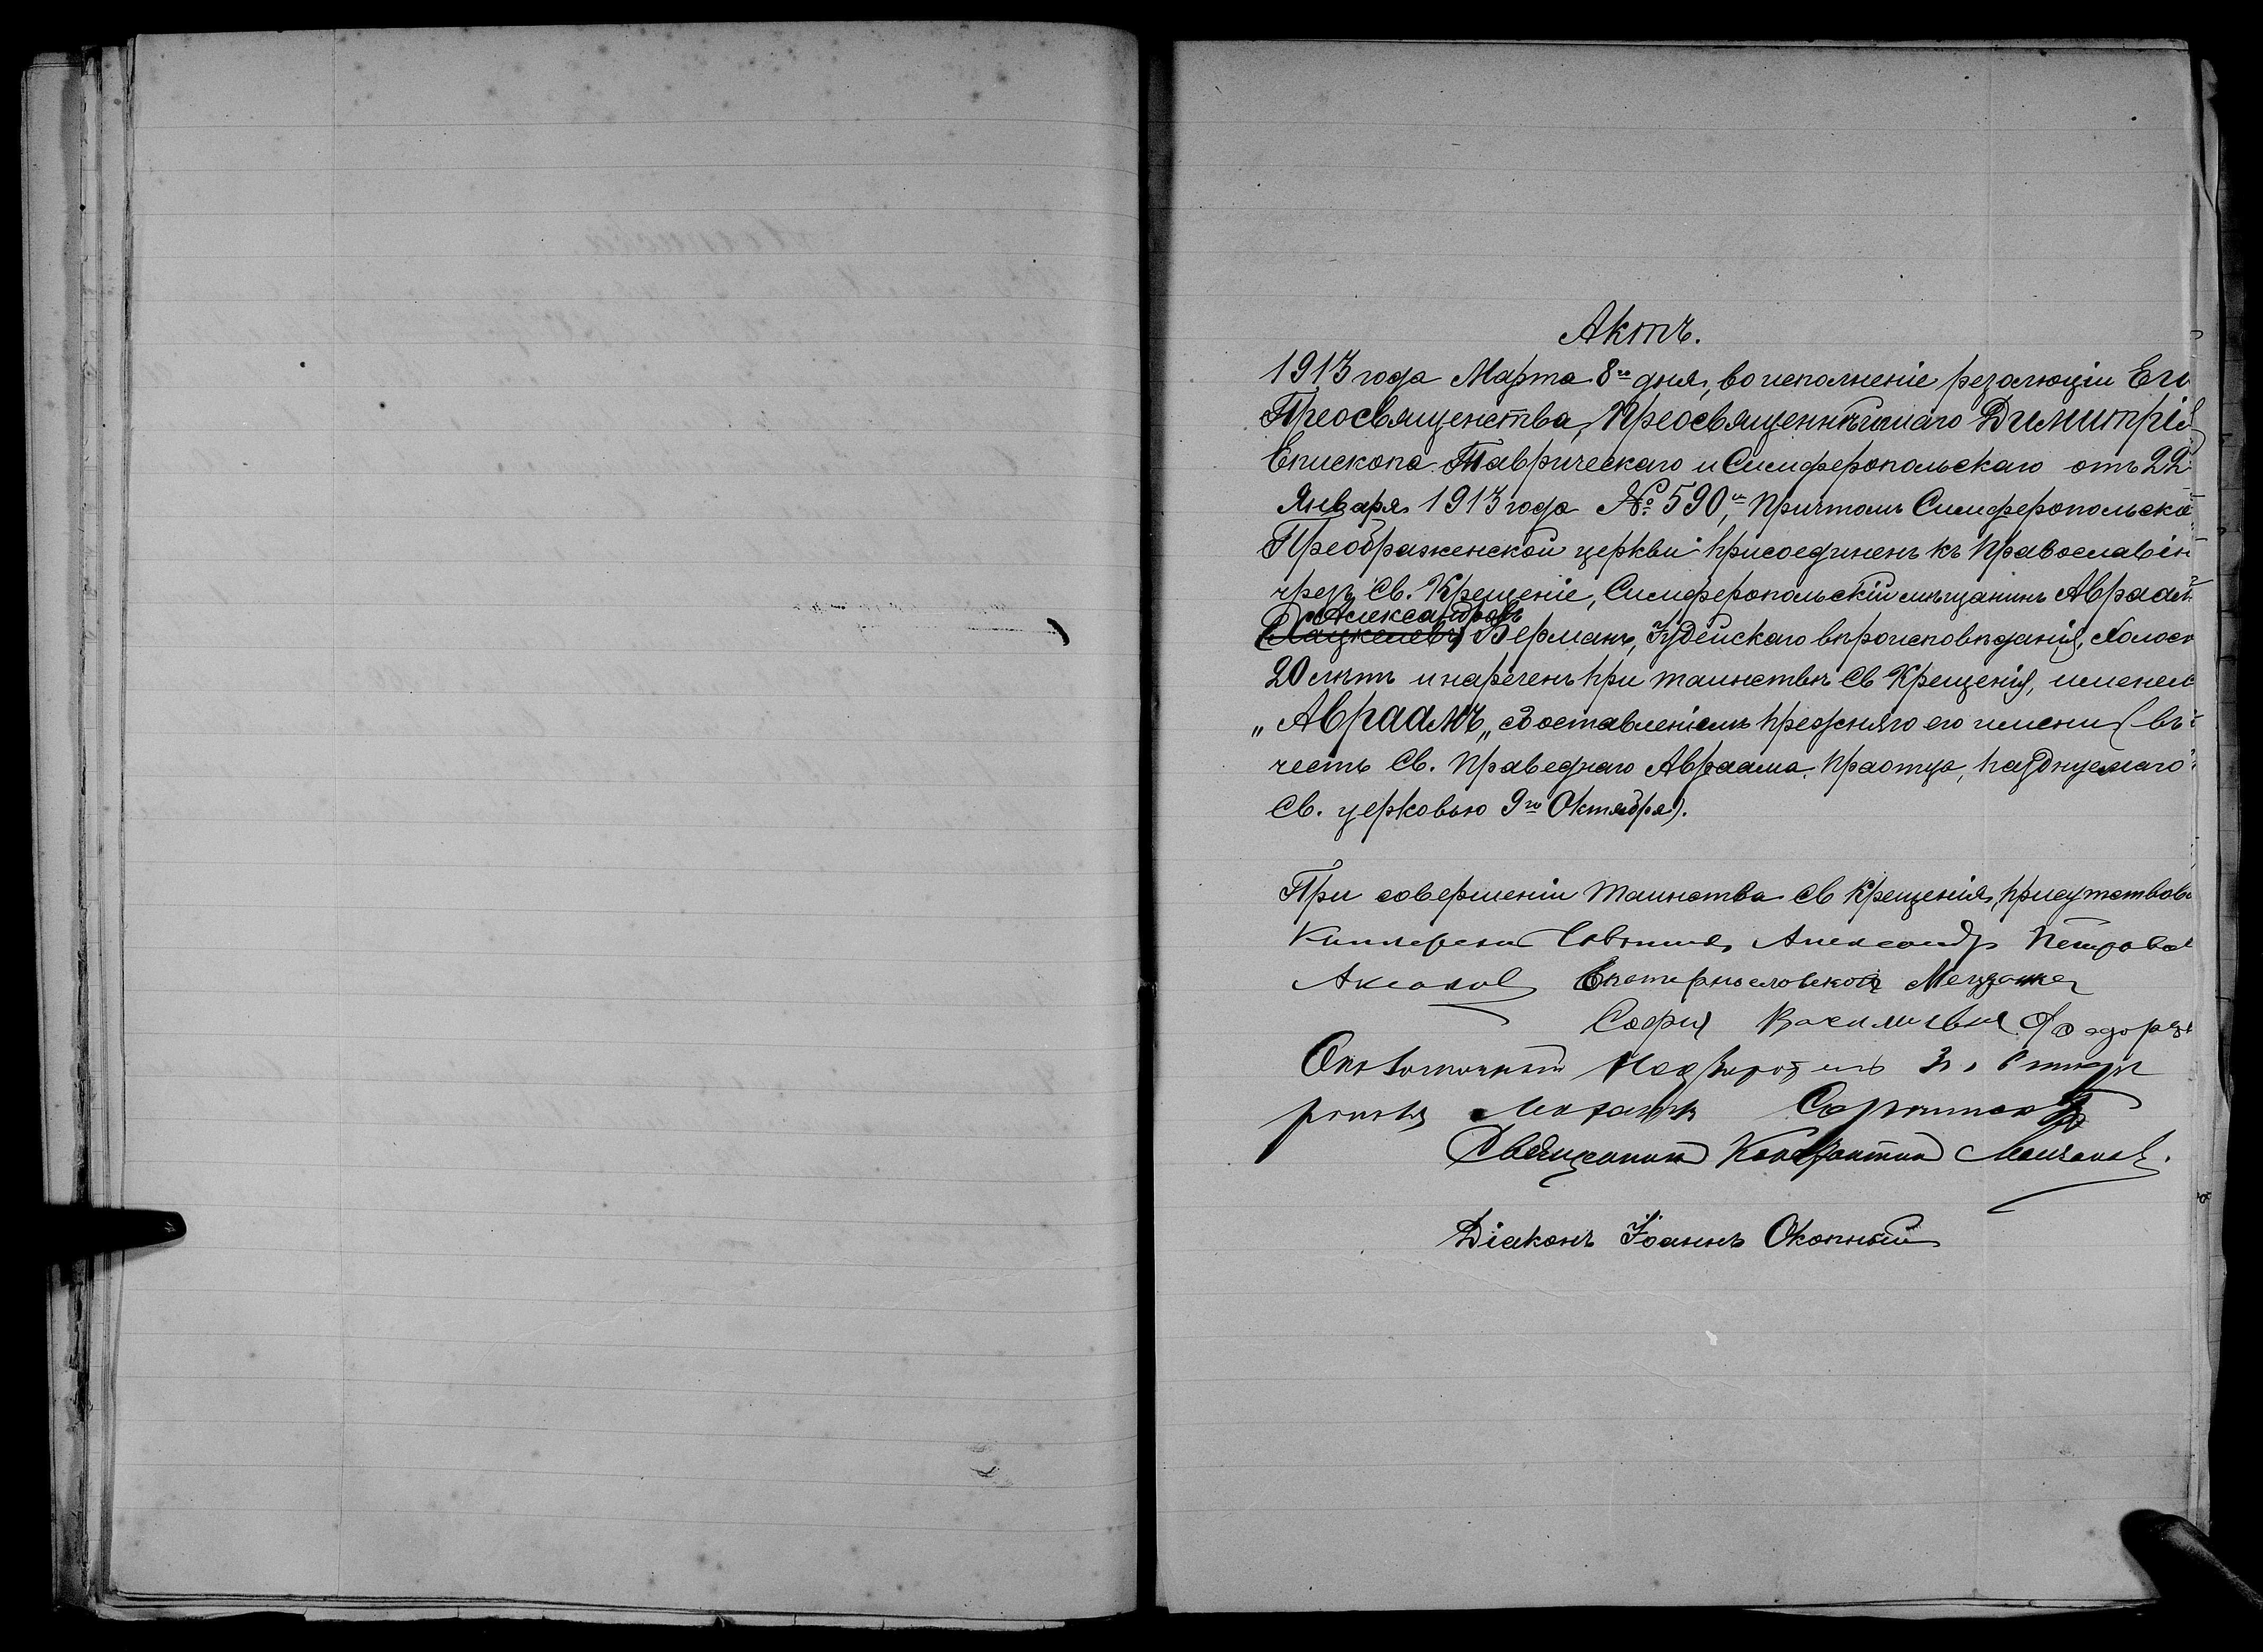 Актъ.
1913 года Марта 8го дня, во исполненіе резолюціи Его
Преосвященства, Преосвященнѣйшаго Димитрія
Епископа Таврическаго и Симферопольскаго отъ 22
Января 1913 года № 590, причтомъ Симферопольско
Преображенской церкви присоединенъ къ Православію
чрезъ Св. Крещеніе, Симферопольскій мѣщанинъ Авраамъ
Александровъ
Берманъ, Іудейскаго вѣроисповѣданія, холост
20 лѣтъ и нареченъ при таинствѣ Св Крещенія, именем
„Авраамъ„ съ оставленіемъ прежняго его имени (въ
честь Св. Праведнаго Авраама Праотца, празднуемаго
Св. церковью 9го Октября).
При совершеніи Таинства Св Крещенія присутствова
Александр Петрова
Аксанов Екатеринославской Мещанка
Софья Васильевна
Околоточный Надзиратель
Священник Константин
Діаконъ Іоаннъ Окопный